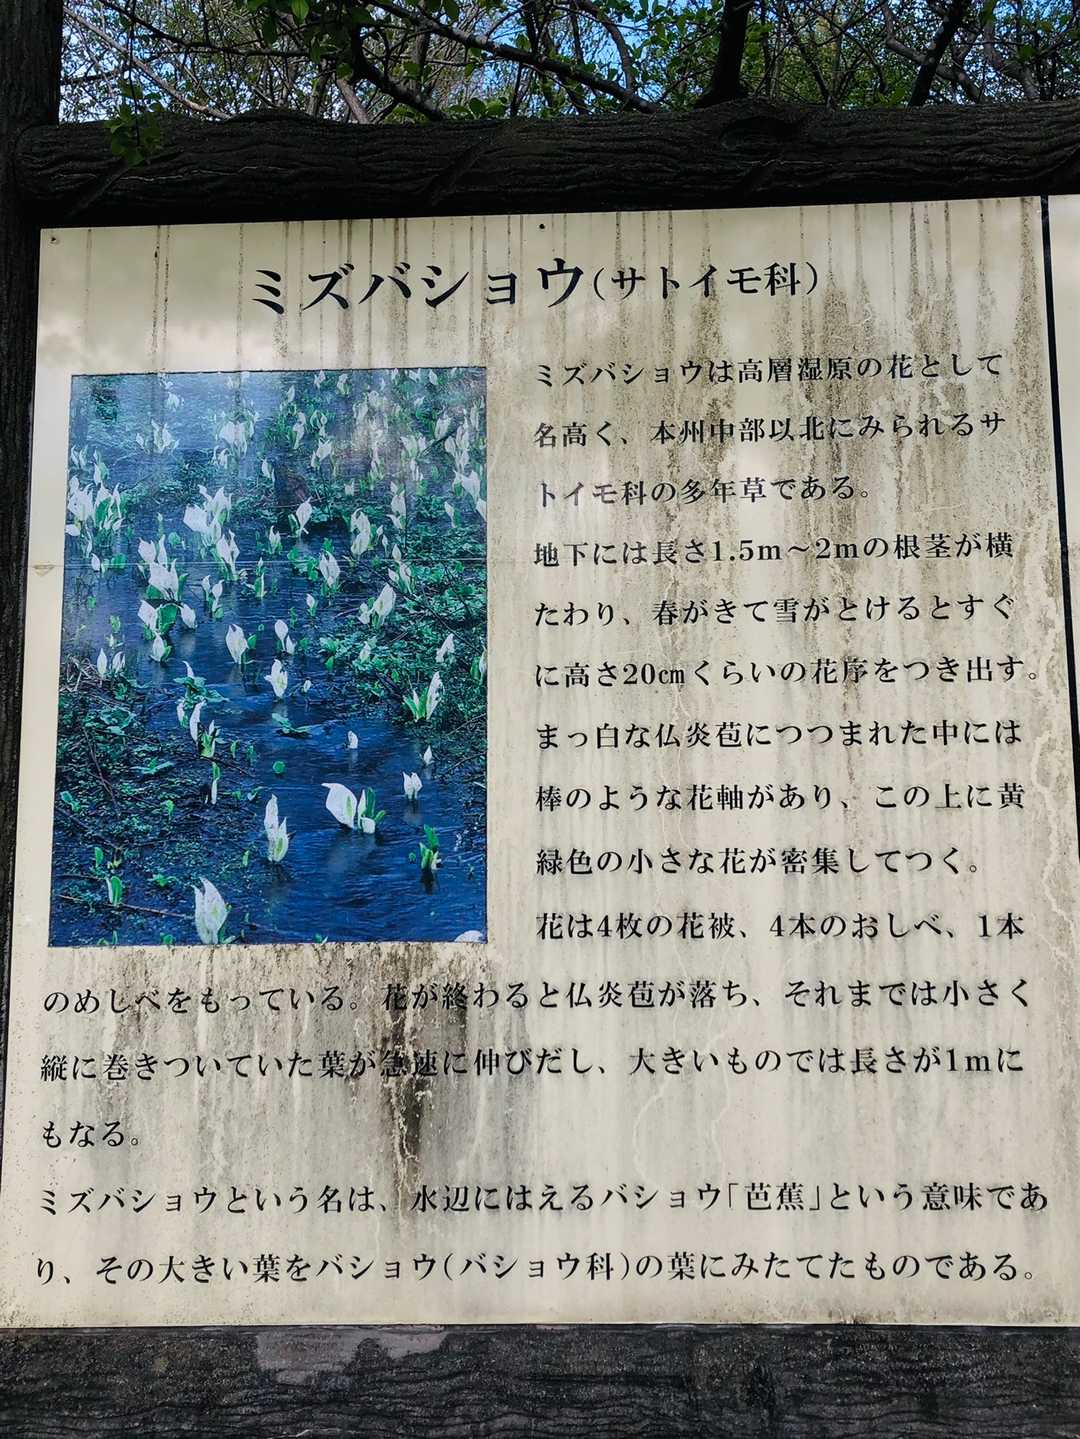 ミズバショウ(サトイモ科)
ミズバショウは高層湿原の花として
名高く、本州中部以北にみられるサ
トイモ科の多年草である。
地下には長さ1.5m～2mの根茎が横
たわり、春がきて雪がとけるとすぐ
に高さ20㎝くらいの花序をつき出す。
まっ白な仏炎苞につつまれた中には
棒のような花軸があり、この上に黄
緑色の小さな花が密集してつく。
花は4枚の花被、4本のおしべ、1本
のめしべをもっている。花が終わると仏炎苞が落ち、それまでは小さく
縦に巻きついていた葉が急速に伸びだし、大きいものでは長さが1mに
もなる。
ミズバショウという名は、水辺にはえるバショウ「芭蕉」という意味であ
り、その大きい葉をバショウ(バショウ科)の葉にみたてたものである。